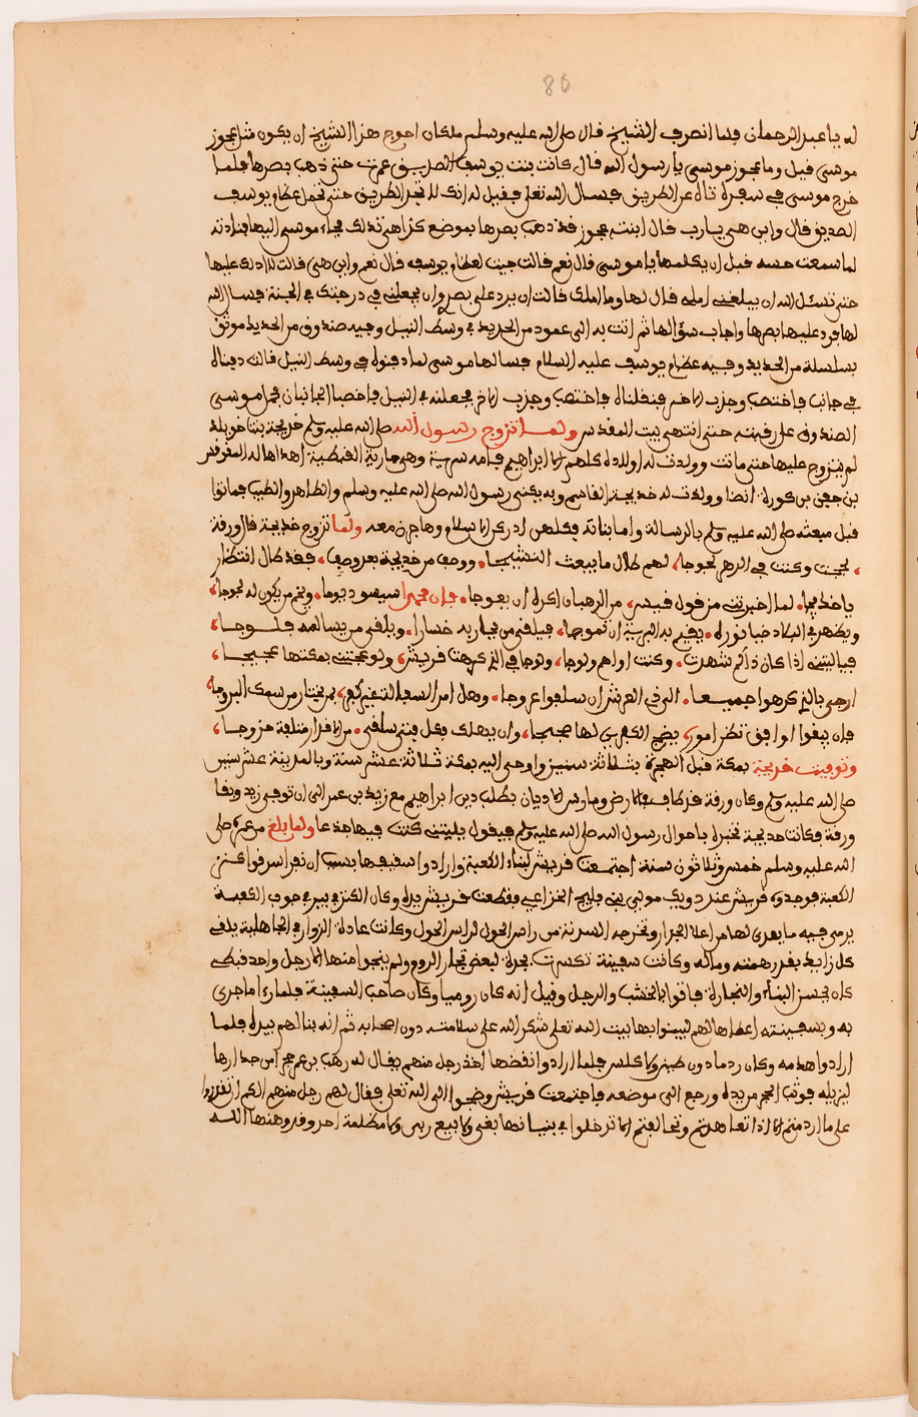 86
له يا عبد الرحمان فلما انصرف الشيخ قال صلى الله عليه وسلم ما كان احوج هذا الشيخ ان يكون مثل عجوز
موسى قيل وما عجوز موسى يا رسول الله قال كانت بنت يوسف الصديق عمرت حتى ذهب بصرها فلما
خرج موسى في سفره تاه عن الطريق فسال الله تعلى فقيل له انك لا تجد الطريق حتى تحمل عظام يوسف
الصديق قال واين هي يا رب قال ابنته عجوز قد ذهب بصرها بموضع كذا هي تدلك فجاء موسى اليها فنادته
لما سمعت حسه قبل ان يكلمها يا موسى قال نعم قالت جيت لعظام يوسف قال نعم واين هي قالت لا ادلك عليها
حتى تسئل الله ان يبلغني املي قال لها وما املك قالت ان يرد علي بصري وان يجعلني في درجتك في الجنة فسال الله
لها فرد عليها بصرها واجاب سؤالها ثم اتت به الى عمود من الحديد في وسط النيل وفيه صندوق من الحديد موثق
بسلسلة من الحديد وفيه عظام يوسف عليه السلام فسالها موسى لما دفنوه في وسط النيل قالت دفناه
في جانب فاخصب وجدب الاخر فنقلناه فاخصب وجدب الاخر فجعلناه في النيل فاخصبا الجانبان فحمل موسى
الصندوق على رقبته حتى انتهى بيت المقدس ولما تزوج رسول الله صلى الله عليه وسلم خديجة بنت خويلد
لم يتزوج عليها حتى ماتت وولدت له اولاده كلهم الا ابراهيم فامه سرية وهي مارية القبطية اهداها له المقوقس
بن جفن بن كورة ايضا وولدت له خديجة القاسم وبه يكنى رسول الله صلى الله عليه وسلم والطاهر والطيب فماتوا
قبل مبعثه صلى الله عليه وسلم بالرسالة واما بناته فكلهن ادركن الاسلام وهاجرن معه ولما تزوج خديجة قال ورقة
لججت وكنت في الذكر لجوجا، لهم طال ما يبعث النشيجا، ووصف من خديجة بعد وصف، فقد طال انتظار
يا خديجا، لما اخبرتني من قول قس، من الرهبان اكره ان يعوجا، فان محمدا سيسود يوما، ويخصم من يكون له حجيجا،
ويظهر في البلاد ضيا نوره، يقيم به البرية ان تموجا، فيلقى من يحاربه خسارا، ويلقى من يسالمه فلوجا،
فيا ليتني اذا كان ذاكم شهدت، وكنت اولهم ولوجا، ولوجا في الذي كرهت قريش، ولو عجت بمكتها عجيجا،
ارجي بالذي كرهوا جميعا، الى ذي العرش ان سلفوا عروجا، وهل امر السفاهة غير كفر، بمن يختار من سمك البروجا،
فان يبقوا وابق تكن امور، يضج الكافرون لها ضجيجا، وان يهلك فكل فتى سيلقى، من الاقدار متلفة خروجا،
وتوفيت خديجة بمكة قبل الهجرة بثلاثة سنين واوحي اليه بمكة ثلاثة عشر سنة وبالمدينة عشر سنين
صلى الله عليه وسلم وكان ورقة قد طاف الارض ومارس الاديان بطلب دين ابراهيم مع زيد بن عمر الى ان توفي زيد وبقا
ورقة فكانت خديجة تخبره باحوال رسول الله صلى الله عليه وسلم فيقول يليتني كنت فيها جذعا ولما بلغ من عمره صلى
الله عليه وسلم خمس وثلاثون سنة اجتمعت قريش لبناء الكعبة وارادوا سقيفها بسبب ان نفر اسرقوا كنز
الكعبة فوجدوه قريش عند دويك مولى بني مليح الخزاعي فقطعت قريش يده وكان الكنز في بير في جوف الكعبة
يرمى فيه ما يهدى لها من اعلا الجدار وتخرجه السدنة من راس الحول لراس الحول وكانت عادة الزوار في الجاهلية يلقي
كل زاير بقدر همته وماله وكانت سفينة تكسرت بجدة لبعض تجار الروم ولم ينجوا منها الا رجل واحد قبطي
كان يحسن البناء والنجارة فاتوا بالخشب والرجل وقيل انه كان روميا وكان صاحب السفينة فلما راء ما جرى
به وبسفينته اعطاها لهم ليبنوا بها بيت الله تعلى شكر الله على سلامته دون اصحابه ثم انه بنا لهم بيده فلما
ارادوا هدمه وكان ردما دون طين ولا كلس فلما ارادوا نقضها اخذ رجل منهم يقال له وهب بن عم حجر امن جدارها
ليزيله فوثب الحجر من يده ورجع الى موضعه فاجتمعت قريش وضجوا الى الله تعلى فقال لهم رجل منهم الكم ان تقدروا
على ما اردتم الا اذا تعاهدتم وتحالفتم الا تدخلوا في بنيانها بغي ولا بيع ربى ولا مظلمة احد وقد وهنها الله